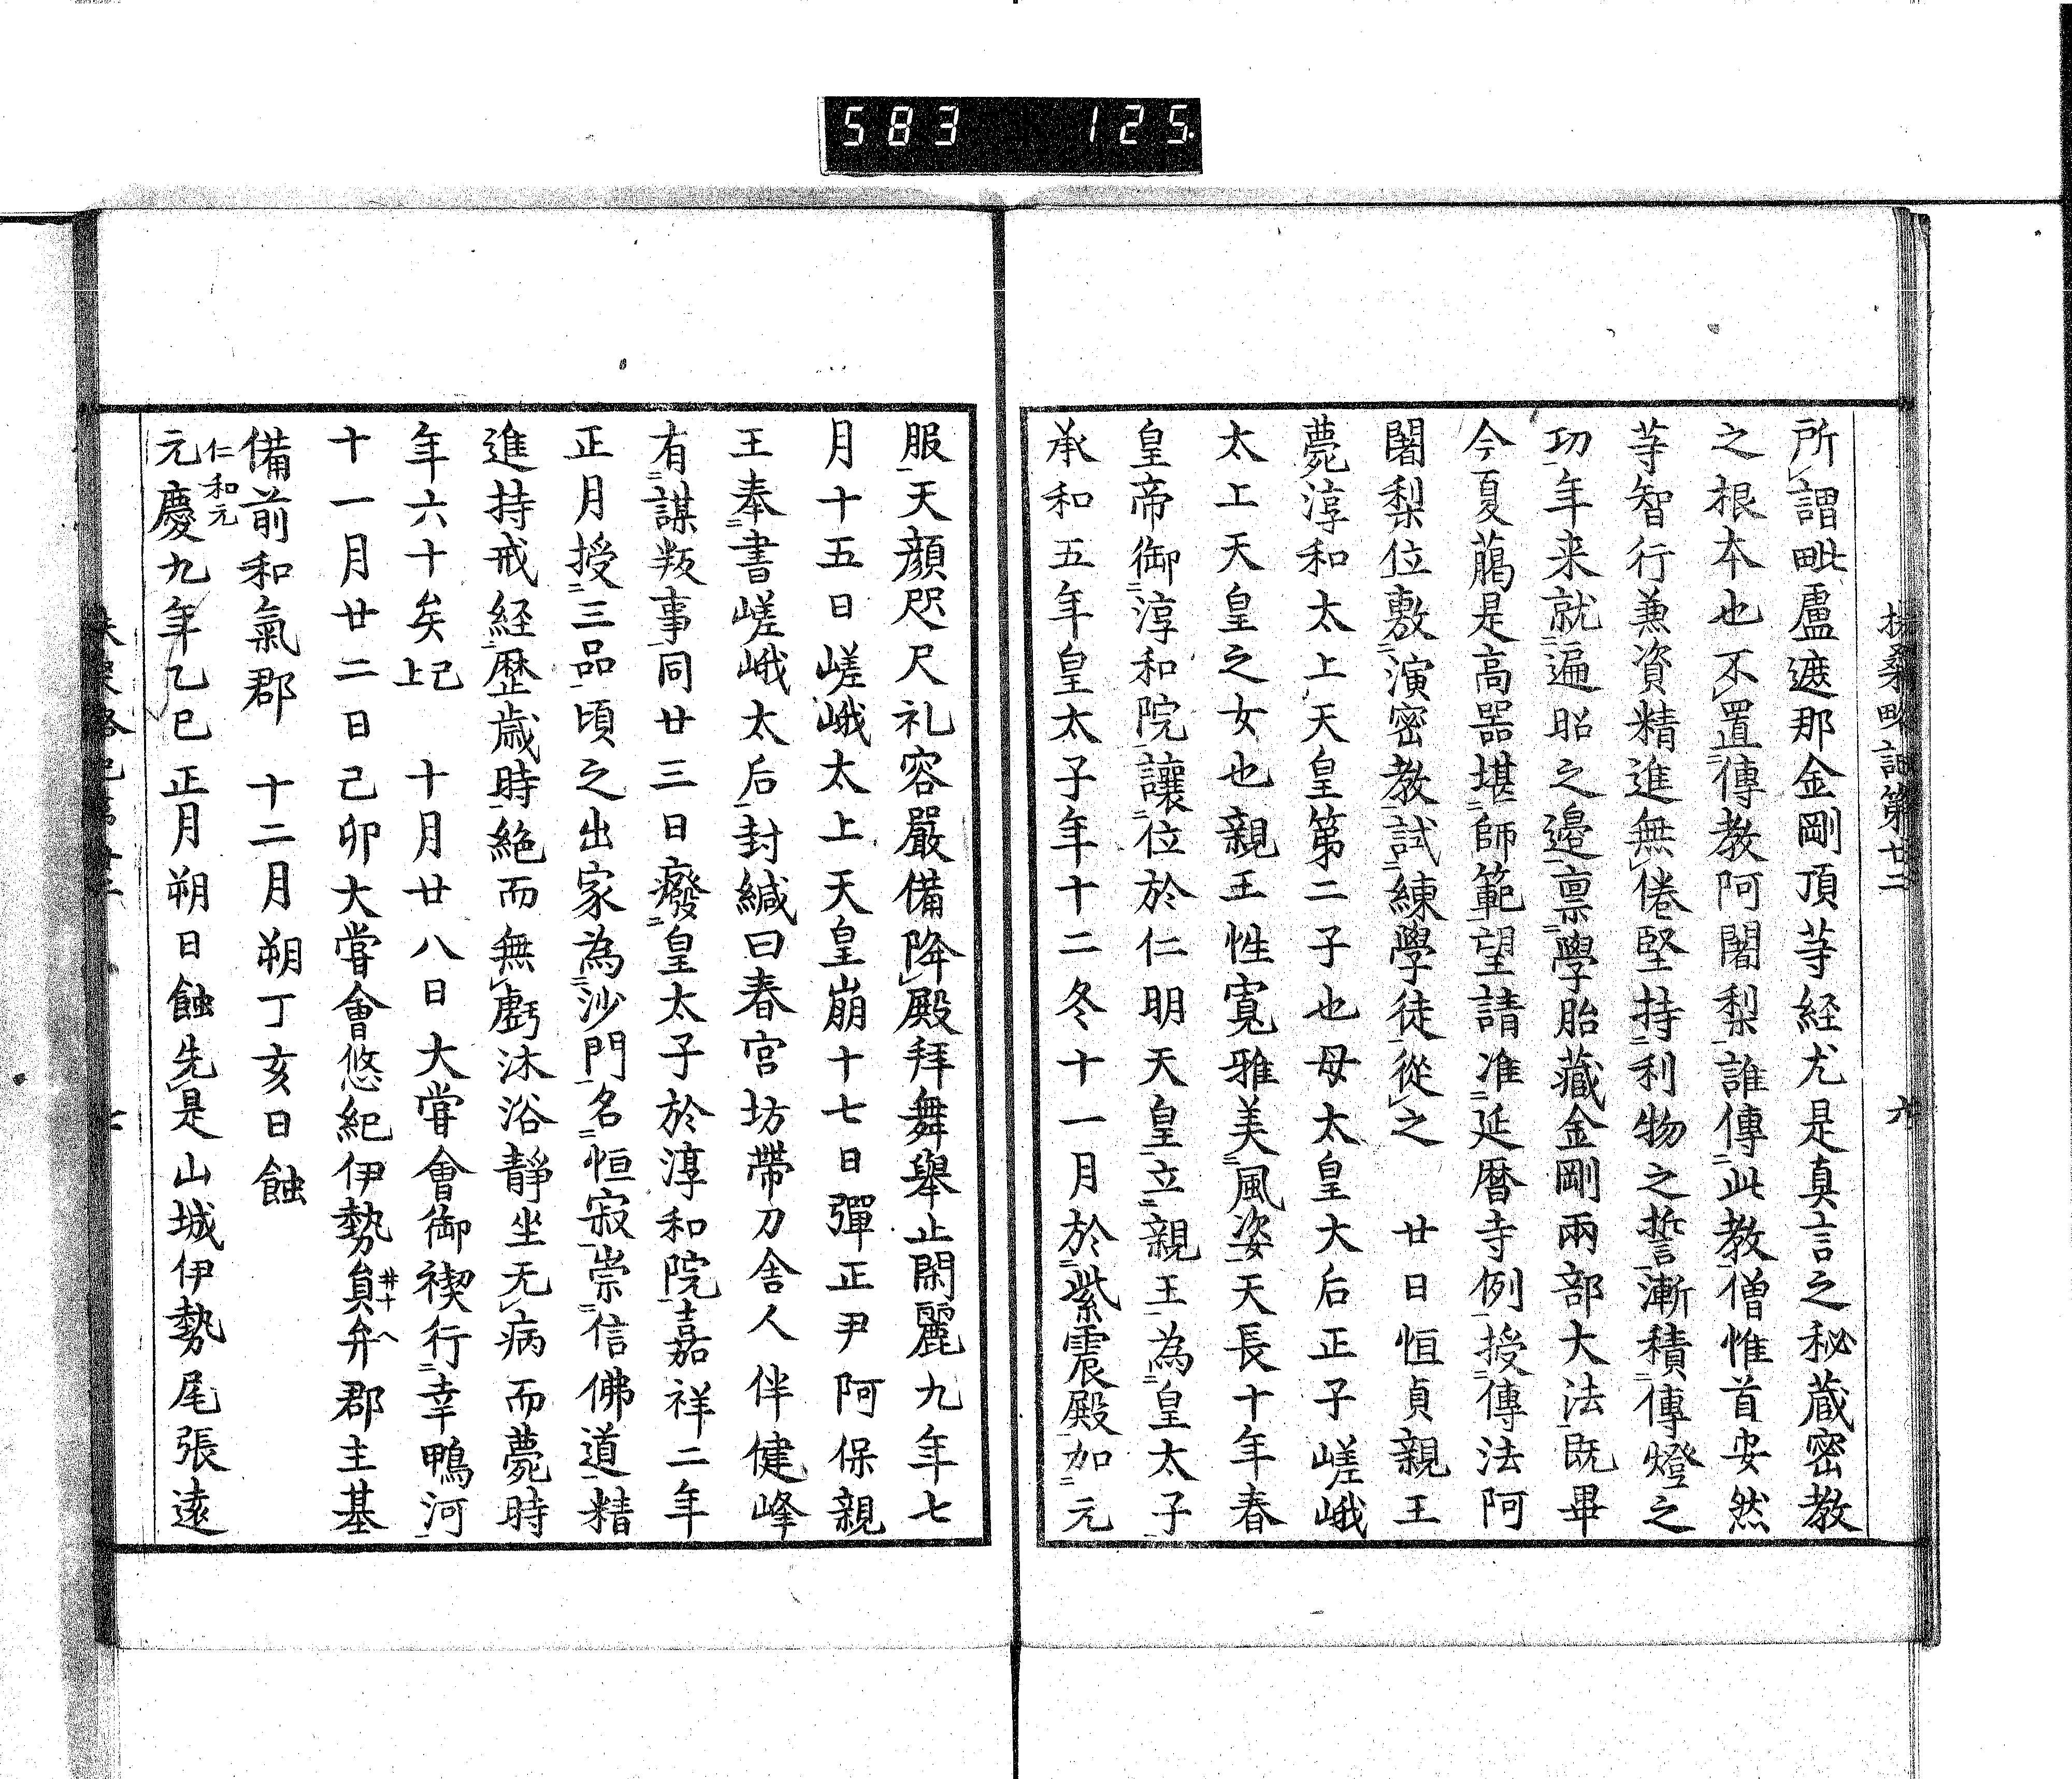 583 125.
扶桑略記第廿二 六
所謂毗盧遮那金剛頂䓁経尤是真言之秘蔵密教
之根本也不置傳教阿闍梨誰傳此教僧惟首安然
䓁智行兼資精進無倦堅持利物之誓漸積傳燈之
功年来就遍昭之邉禀學胎蔵金剛兩部大法既畢
今夏﨟是高器堪師範望請准延暦寺例授傳法阿
闍梨位敷演密教試練學徒從之 廿日恒貞親王
薨淳和太上天皇第二子也母太皇大后正子嵯峨
太上天皇之女也親王性寛雅美風姿天長十年春
皇帝御淳和院讓位於仁明天皇立親王為皇太子
承和五年皇太子年十二冬十一月於紫震殿加元
服天顔咫尺礼容嚴備降殿拜舞舉止閑麗九年七
月十五日嵯峨太上天皇崩十七日彈正尹阿保親
王奉書嵯峨太后封緘曰春宮坊帶刀舎人伴健峰
有謀叛事同廿三日癈皇太子於淳和院嘉祥二年
正月授三品頃之出家為沙門名恒寂崇信佛道精
進持戒経歴歳時絶而無虧沐浴靜坐无病而薨時
年六十矣已上 十月廿八日大甞會御禊行幸鴨河
十一月廿二日己卯大甞會悠紀伊勢員弁郡主基
井十へ
備前和氣郡 十二月朔丁亥日蝕
仁和元
元慶九年乙巳正月朔日蝕先是山城伊勢尾張遠